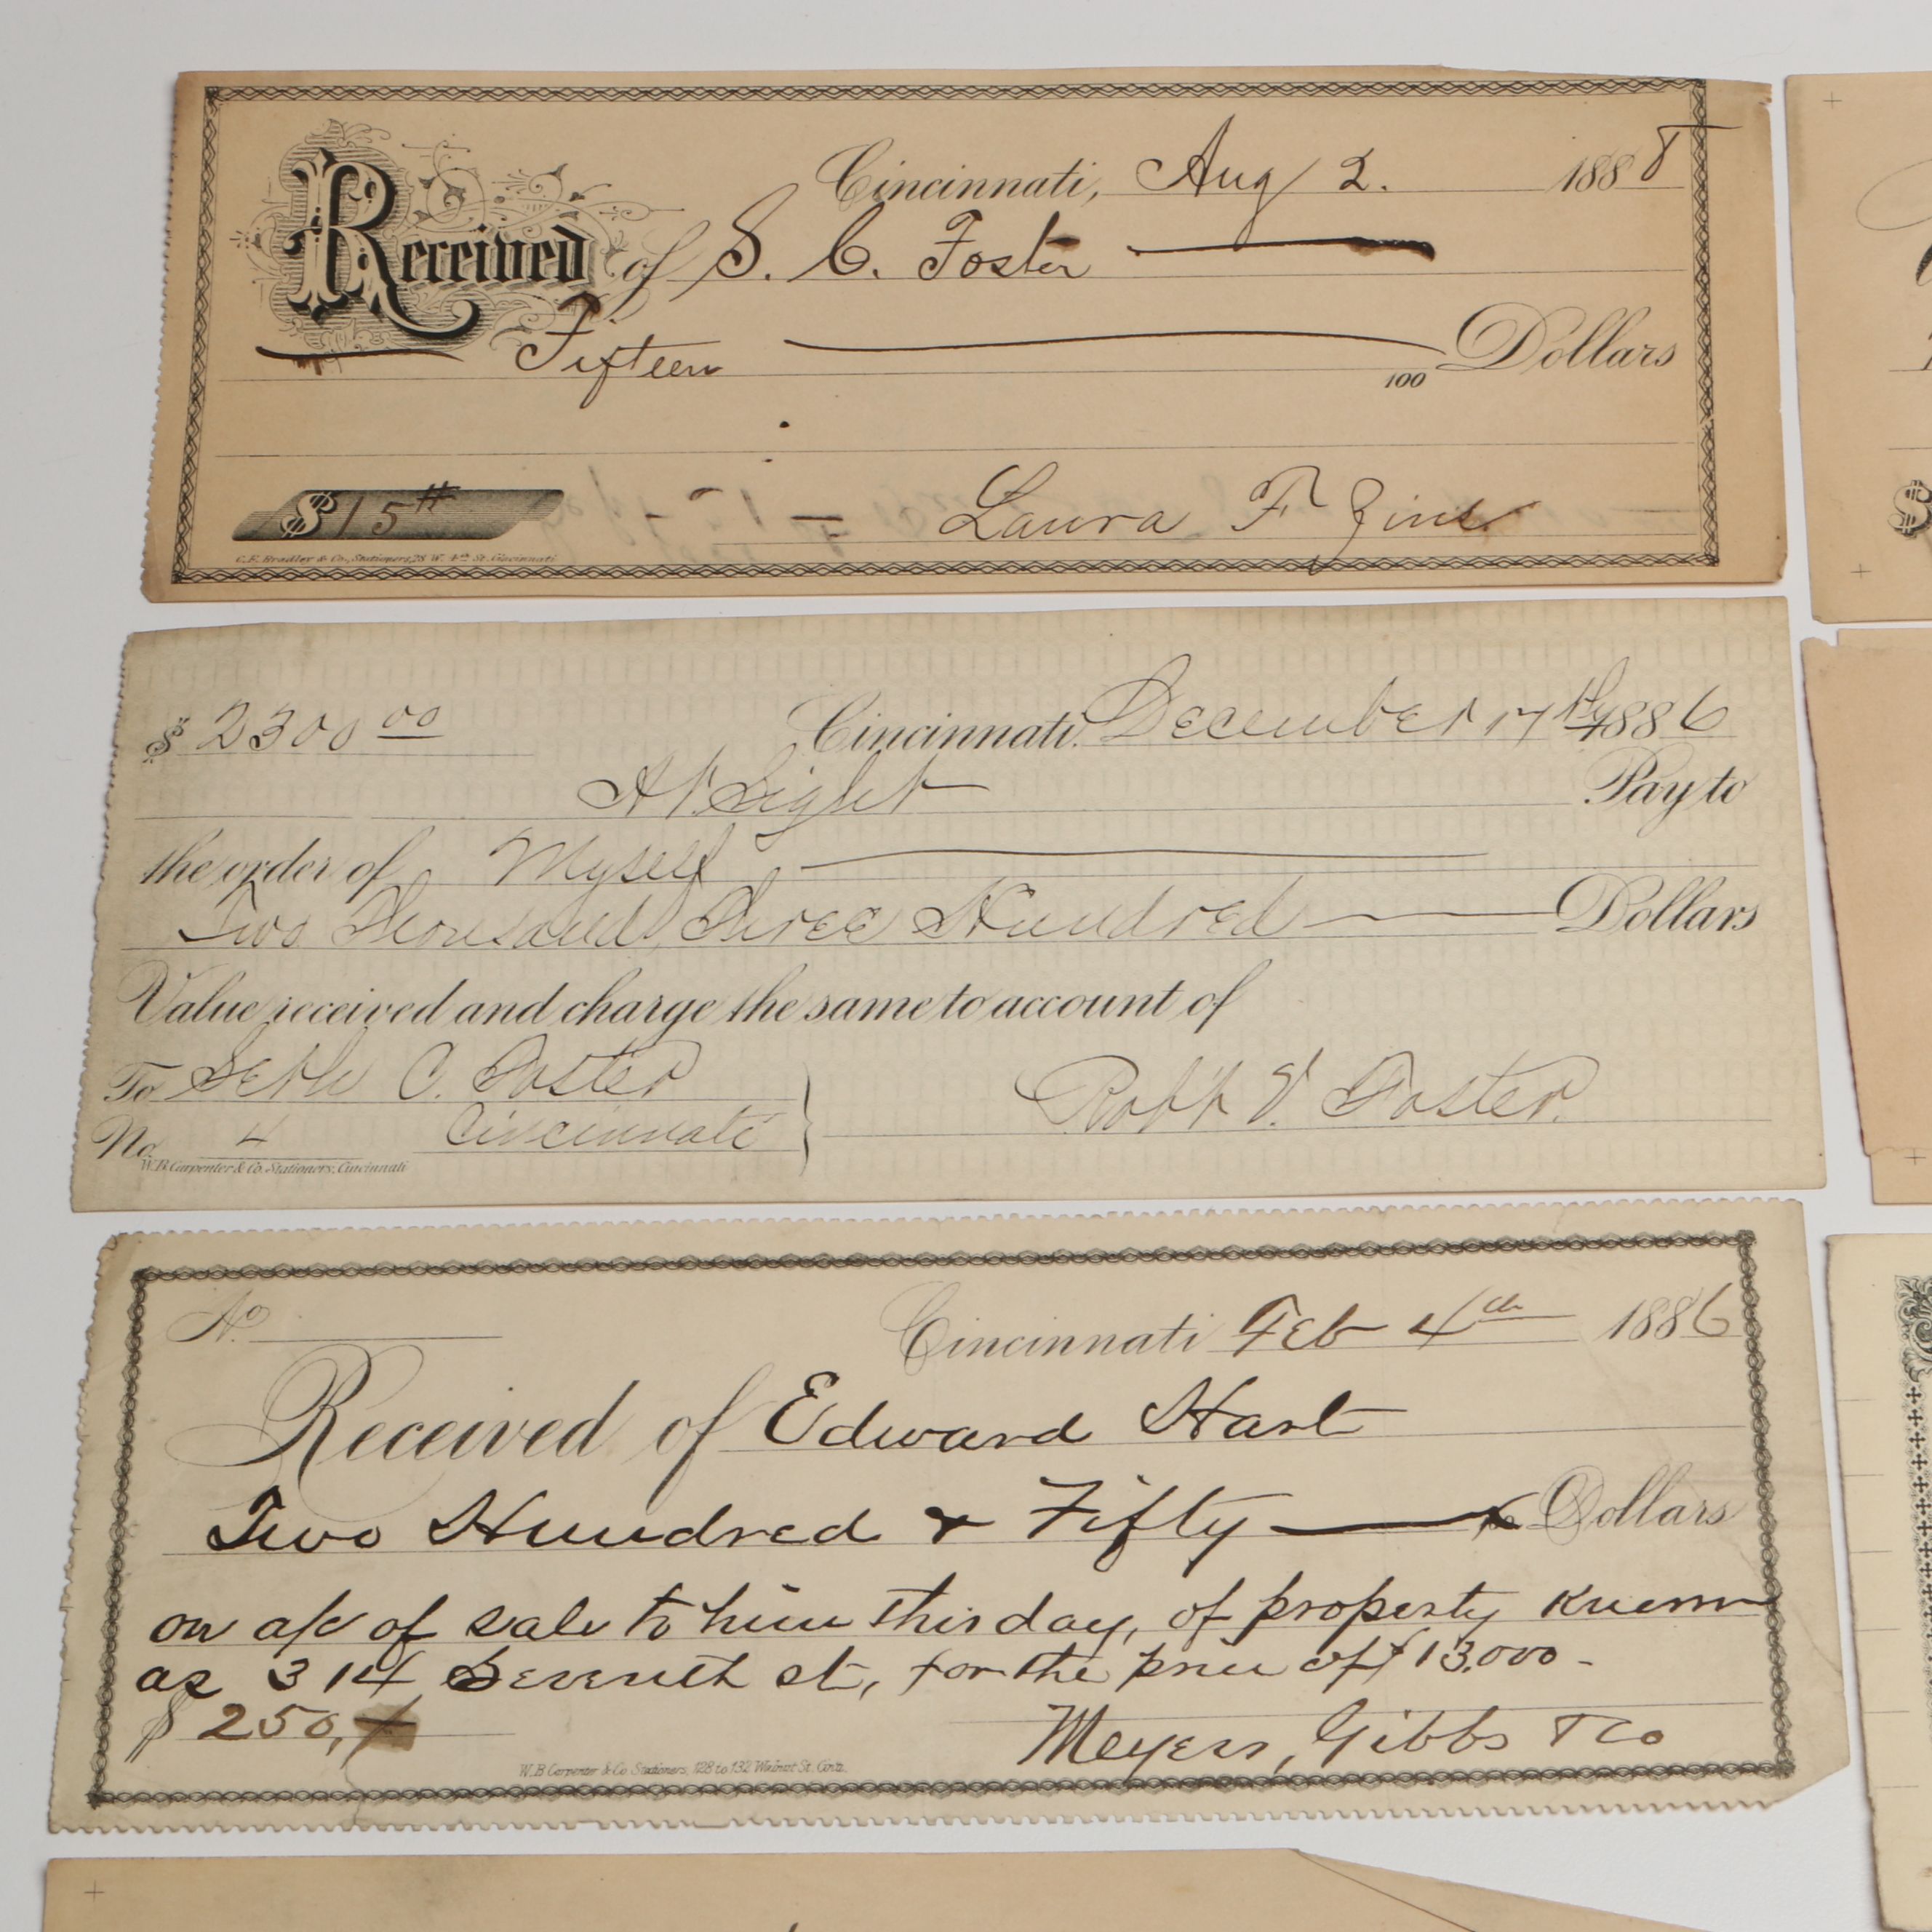 Cincinnati, Aug 2. 1888
Received of S. C. Foster
Fifteen 100 Dollars
$15
Laura F
C. F. Bradley & Co., Stationers, 78 W. 4th St. Cincinnati
$ 2300 00 Cincinnati. December 17th 1886
At Sight Pay to
the order of Myself
Two Thousand Three Hundred Dollars
Value received and charge the same to account of
To Seth C. Foster
Robt V. Foster.
No. 4 Cincinnati
W. B. Carpenter & Co. Stationers, Cincinnati
No. Cincinnati Feb 4th 1886
Received of Edward Hart
Two Hundred & Fifty Dollars
on a/c of sale to him this day, of property known
as 314 Seventh st, for the price of $13.000-
$ 250,
Meyers, Gibbs & Co
W. B. Carpenter & Co. Stationers, 128 to 132 Walnut St. Cinti.
$